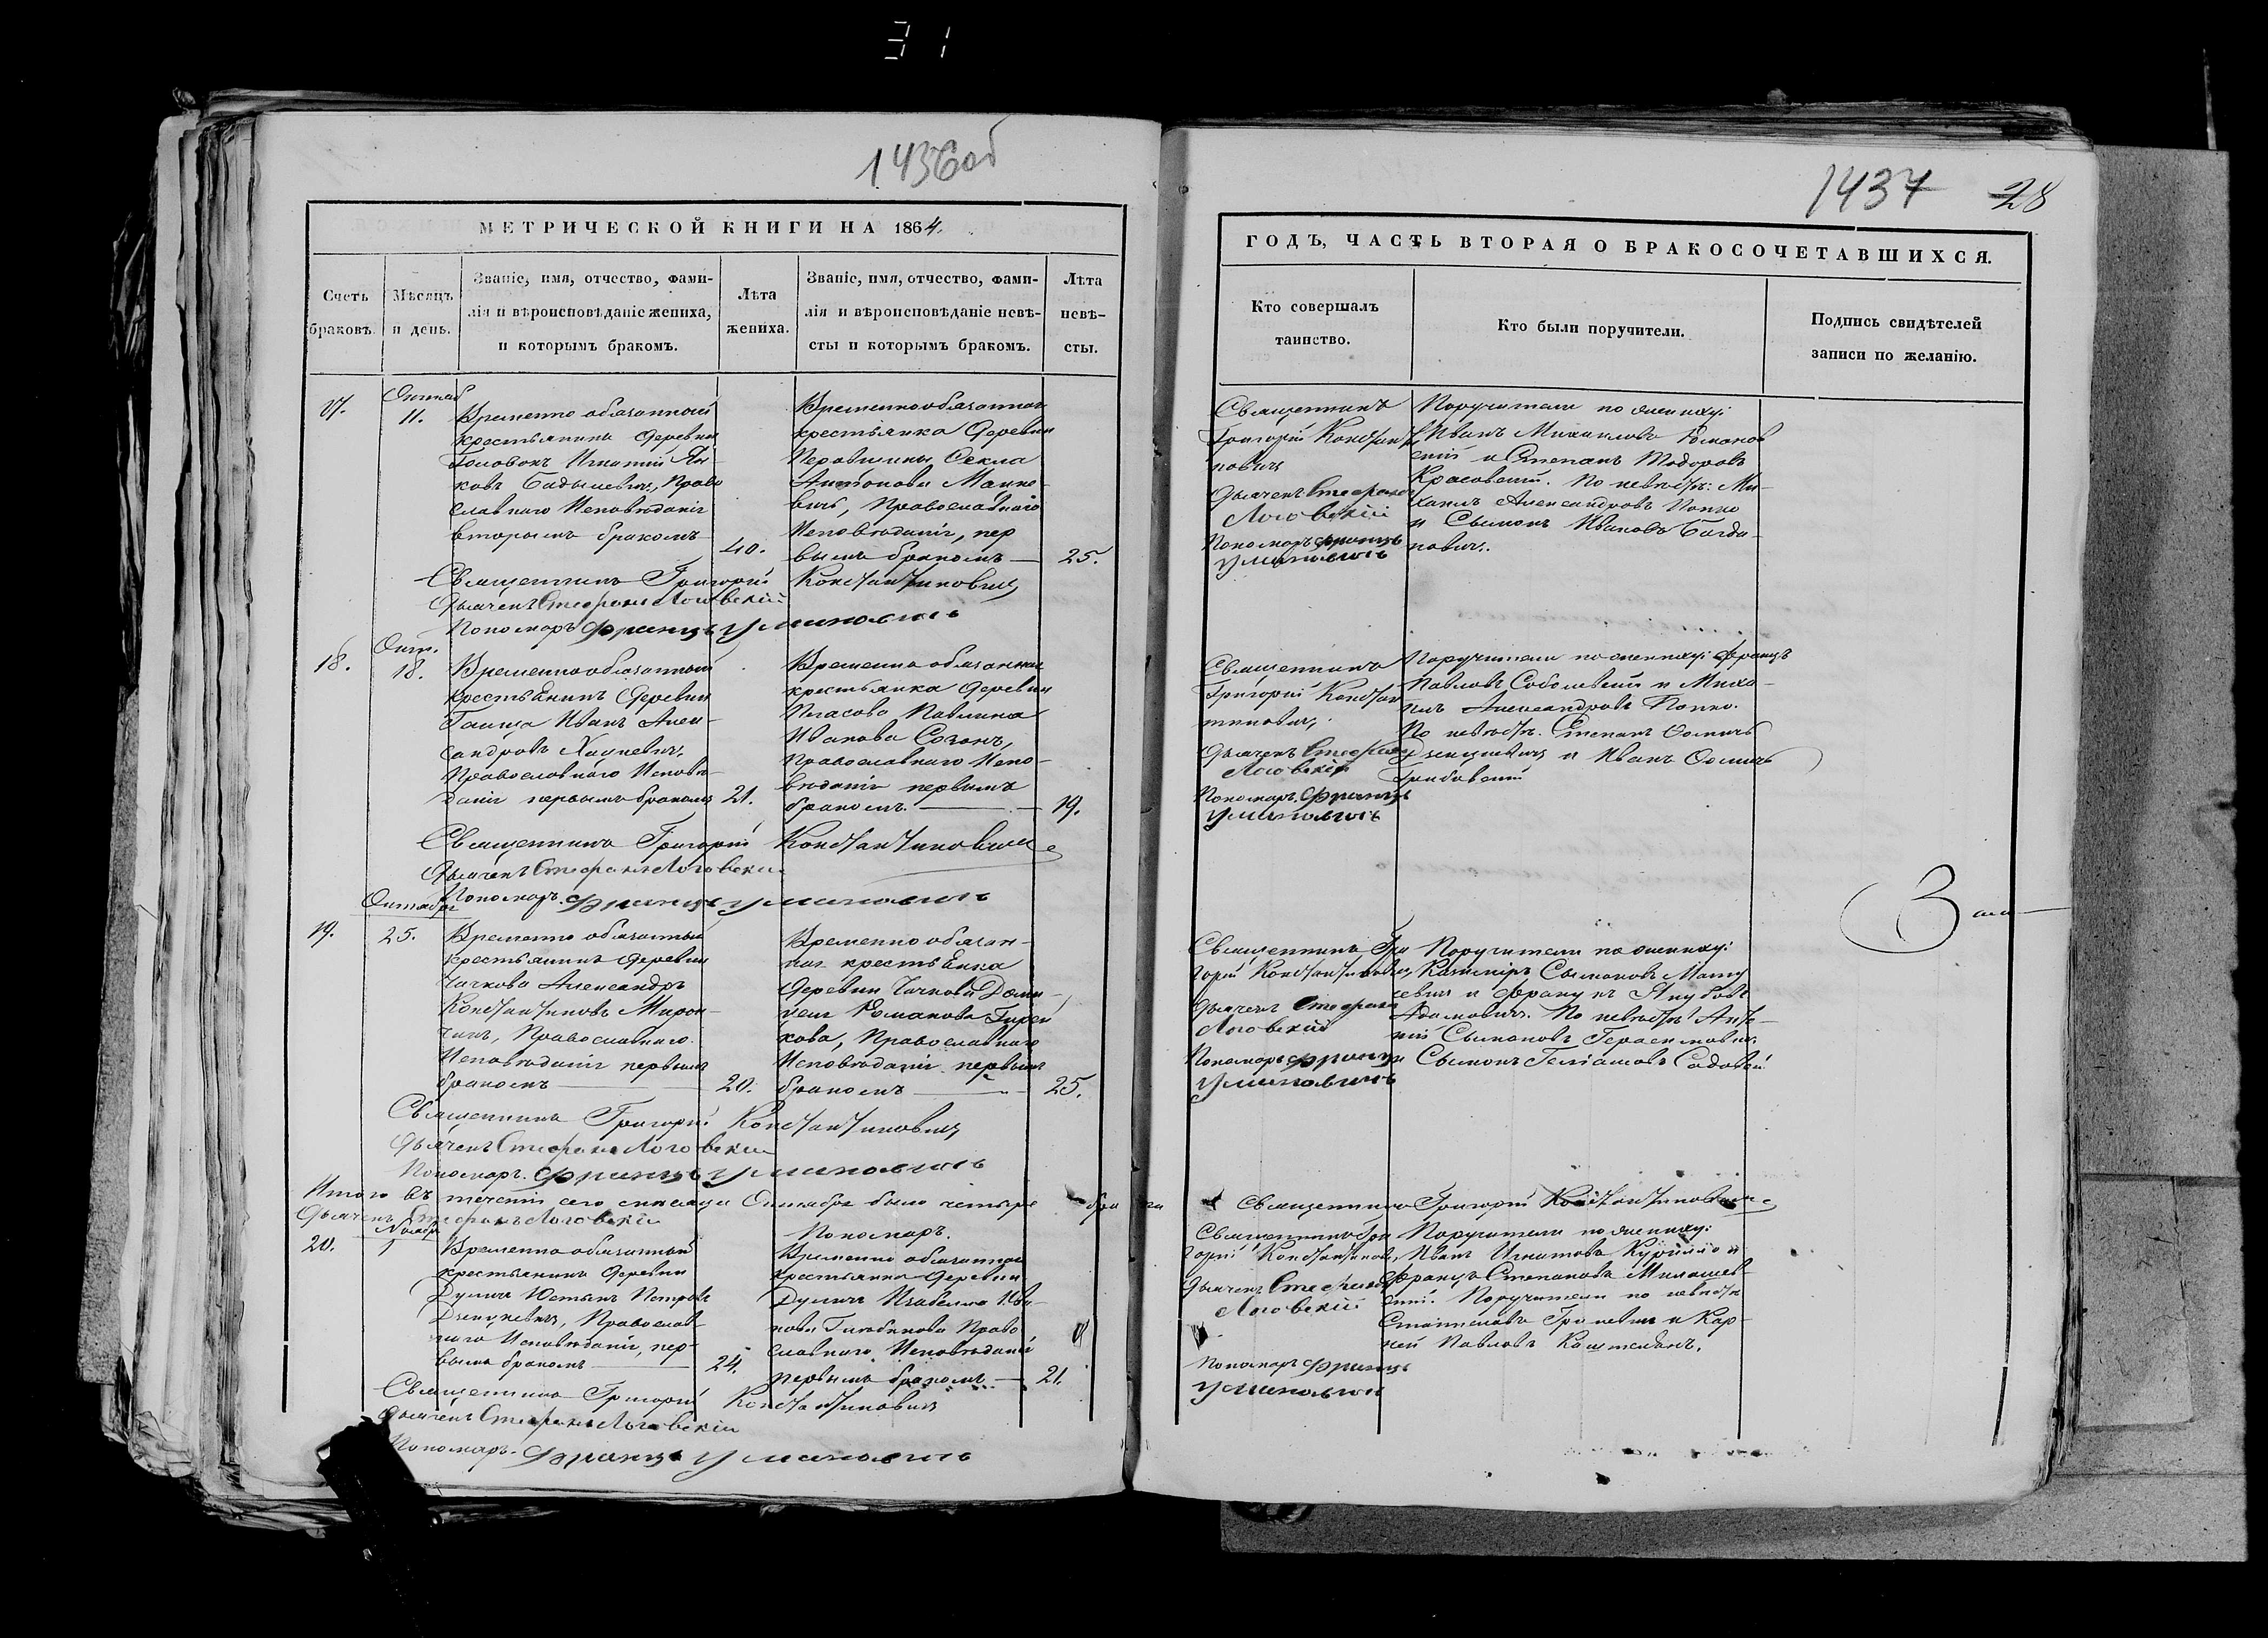 31
1436 об
МЕТРИЧЕСКОЙ КНИГИ НА 1864.
Счетъ браковъ.
Мѣсяцъ и день.
Званіе, имя, отчество, фами-
лія и вѣроисповѣданіе жениха,
и которымъ бракомъ.
Лѣта жениха.
Званіе, имя, отчество, фами-
лія и вѣроисповѣданіе невѣ-
сты и которымъ бракомъ.
Лѣта невѣ-
сты.
17.
Октяб
11.
Временно обязанный
крестьянинъ деревни
Головокъ Игнатій Ян-
ковъ Право
славнаго Исповѣданія
вторымъ бракомъ
40.
Временнообязанная
крестьянка деревни
Ѳекла
Антонова
вичъ, Православнаго
Исповѣданія, пер
вымъ бракомъ —
25.
Священникъ Григорій Константиновичъ
Дьячекъ Стефанъ Логовскій
Пономарь Францъ
18.
Окт.
18.
Временнообязанный
крестьянинъ деревни
Иванъ Алек-
сандровъ
Православнаго Исповѣ-
данія первымъ бракомъ
21.
Временно обязанная
крестьянка деревни
Павлина
Иванова
Православнаго Испо-
вѣданія первымъ
бракомъ. —
19.
Священникъ Григорій Константиновичъ
Дьячекъ Стефанъ Логовскій
Пономарь Францъ
Октября
19.
25.
Временно обязанный
крестьянинъ деревни
Чачкова Александръ
Константиновъ Мирон-
чикъ, Православнаго
Исповѣданія первымъ
бракомъ —
20.
Временно обязан-
ная крестьянка
деревни Чачкова Доми-
Романова
кова, Православнаго
Исповѣданія первымъ
бракомъ —
25.
Священникъ Григорій Константиновичъ
Дьячекъ Стефанъ Логовскій
Пономарь. Францъ
Итого въ теченіи сего мѣсяца Октября было четыре бра ка
Дьячекъ Стефанъ Логовскій
Пономарь.
Ноябр
20.
1
Временно обязанный
крестьянинъ деревни
Дуличъ Юстынъ Петровъ
Дзенцкевичъ, Православ-
наго Исповѣданія, пер-
вымъ бракомъ —
24.
Временно обязанная
крестьянка деревни
Дуличъ Изабелла Ива-
нова Право
славнаго Исповѣданія
первымъ бракомъ —
21.
Священникъ Григорій Константиновичъ
Дьячекъ Стефанъ Логовскій
Пономарь. Францъ
1437 28
ГОДЪ, ЧАСТЬ ВТОРАЯ О БРАКОСОЧЕТАВШИХСЯ.
Кто совершалъ
таинство.
Кто были поручители.
Подпись свидѣтелей
записи по желанію.
Священникъ
Григорій Констан
тиновичъ
Дьячекъ Стефанъ
Логовскій
Пономарь Францъ
Поручители по женихѣ:
Иванъ Михайловъ Романов
скій и Степанъ Тодоровъ
Красовскій. По невѣстѣ: Ми-
хаилъ Александровъ Попко
и Сымонъ Ивановъ Богда-
новичъ.
Священникъ
Григорій Констан
тиновичъ,
Дьячекъ Стефанъ
Логовскій
Пономарь. Францъ
Поручители по женихѣ: Францъ
Павловъ Соболевскій и Миха-
илъ Александровъ Попко.
По невѣстѣ. Степанъ Ѳоминъ
и Иванъ Ѳоминъ
Грибовскій
Священникъ Гри
горій Константиновичъ
Дьячекъ Стефанъ
Логовскій
Пономарь Францъ
Поручители по женихѣ:
Казимиръ Сымоновъ Мату
севичъ и Францъ Якубовъ
Адамовичъ. По невѣстѣ Анто-
ній Сымоновъ Герасимовичъ
и Сымонъ Садовскій
Священникъ Григорій Константиновичъ
Священникъ Гри
горій Константинов,
Дьячекъ Стефанъ
Логовскій
Пономарь Францъ
Поручители по женихѣ:
Иванъ Игнатовъ Курилло и
Францъ Степановъ Милашев-
скій. Поручители по невѣстѣ
Гриневичъ и Кар-
ней Павловъ